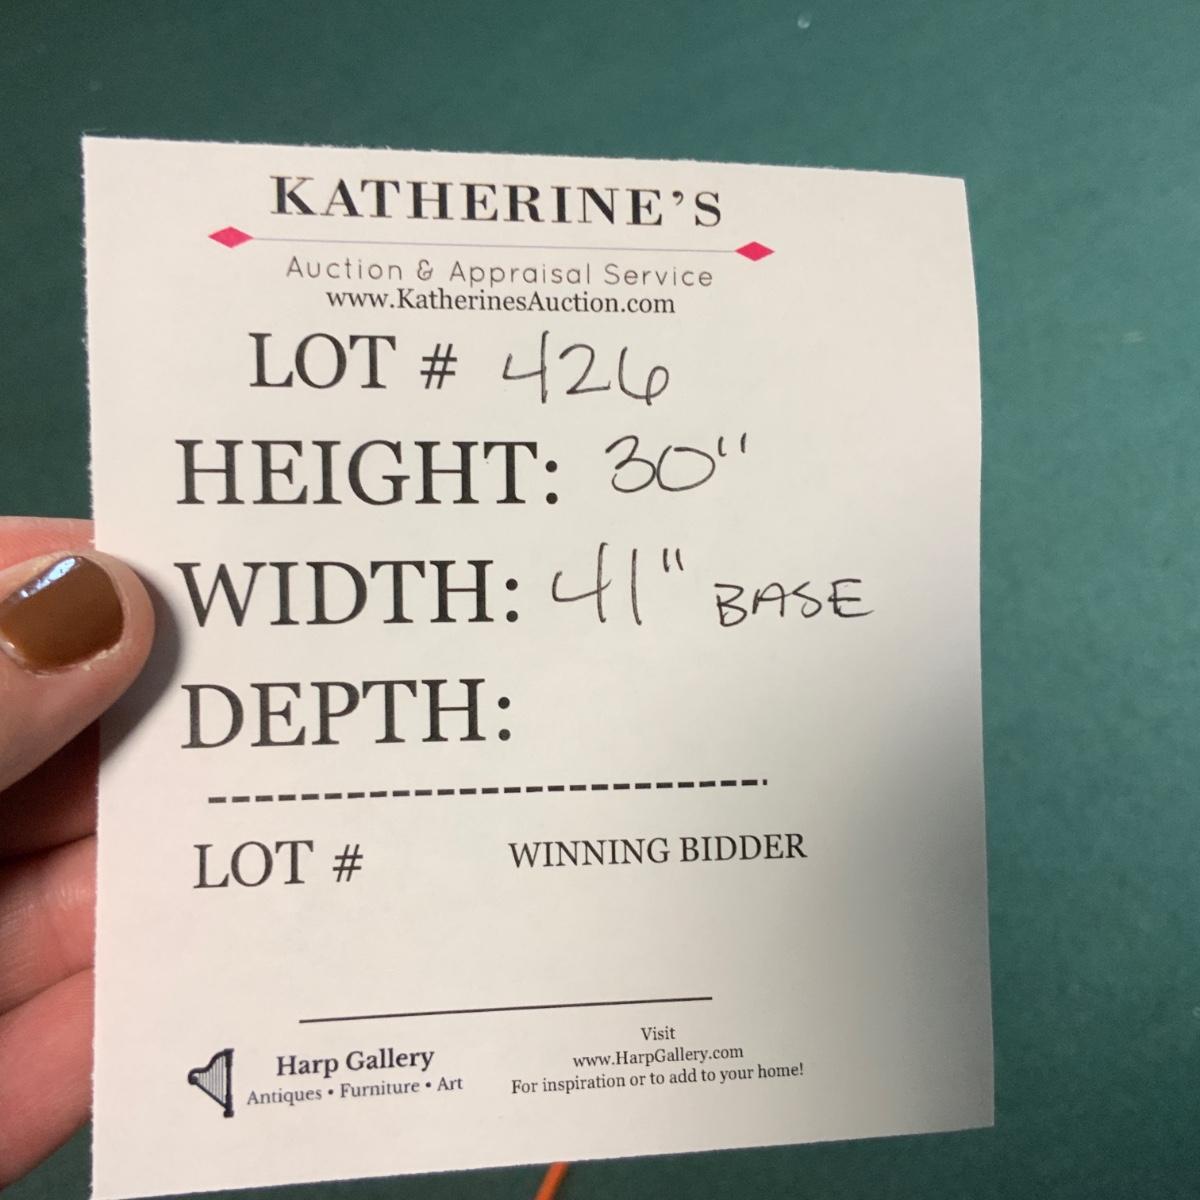 KATHERINE'S
Auction & Appraisal Service
www.KatherinesAuction.com
LOT # 426
HEIGHT: 30"
WIDTH: 41" BASE
DEPTH:
LOT # WINNING BIDDER
Harp Gallery
Antiques • Furniture • Art
Visit
www.HarpGallery.com
For inspiration or to add to your home!